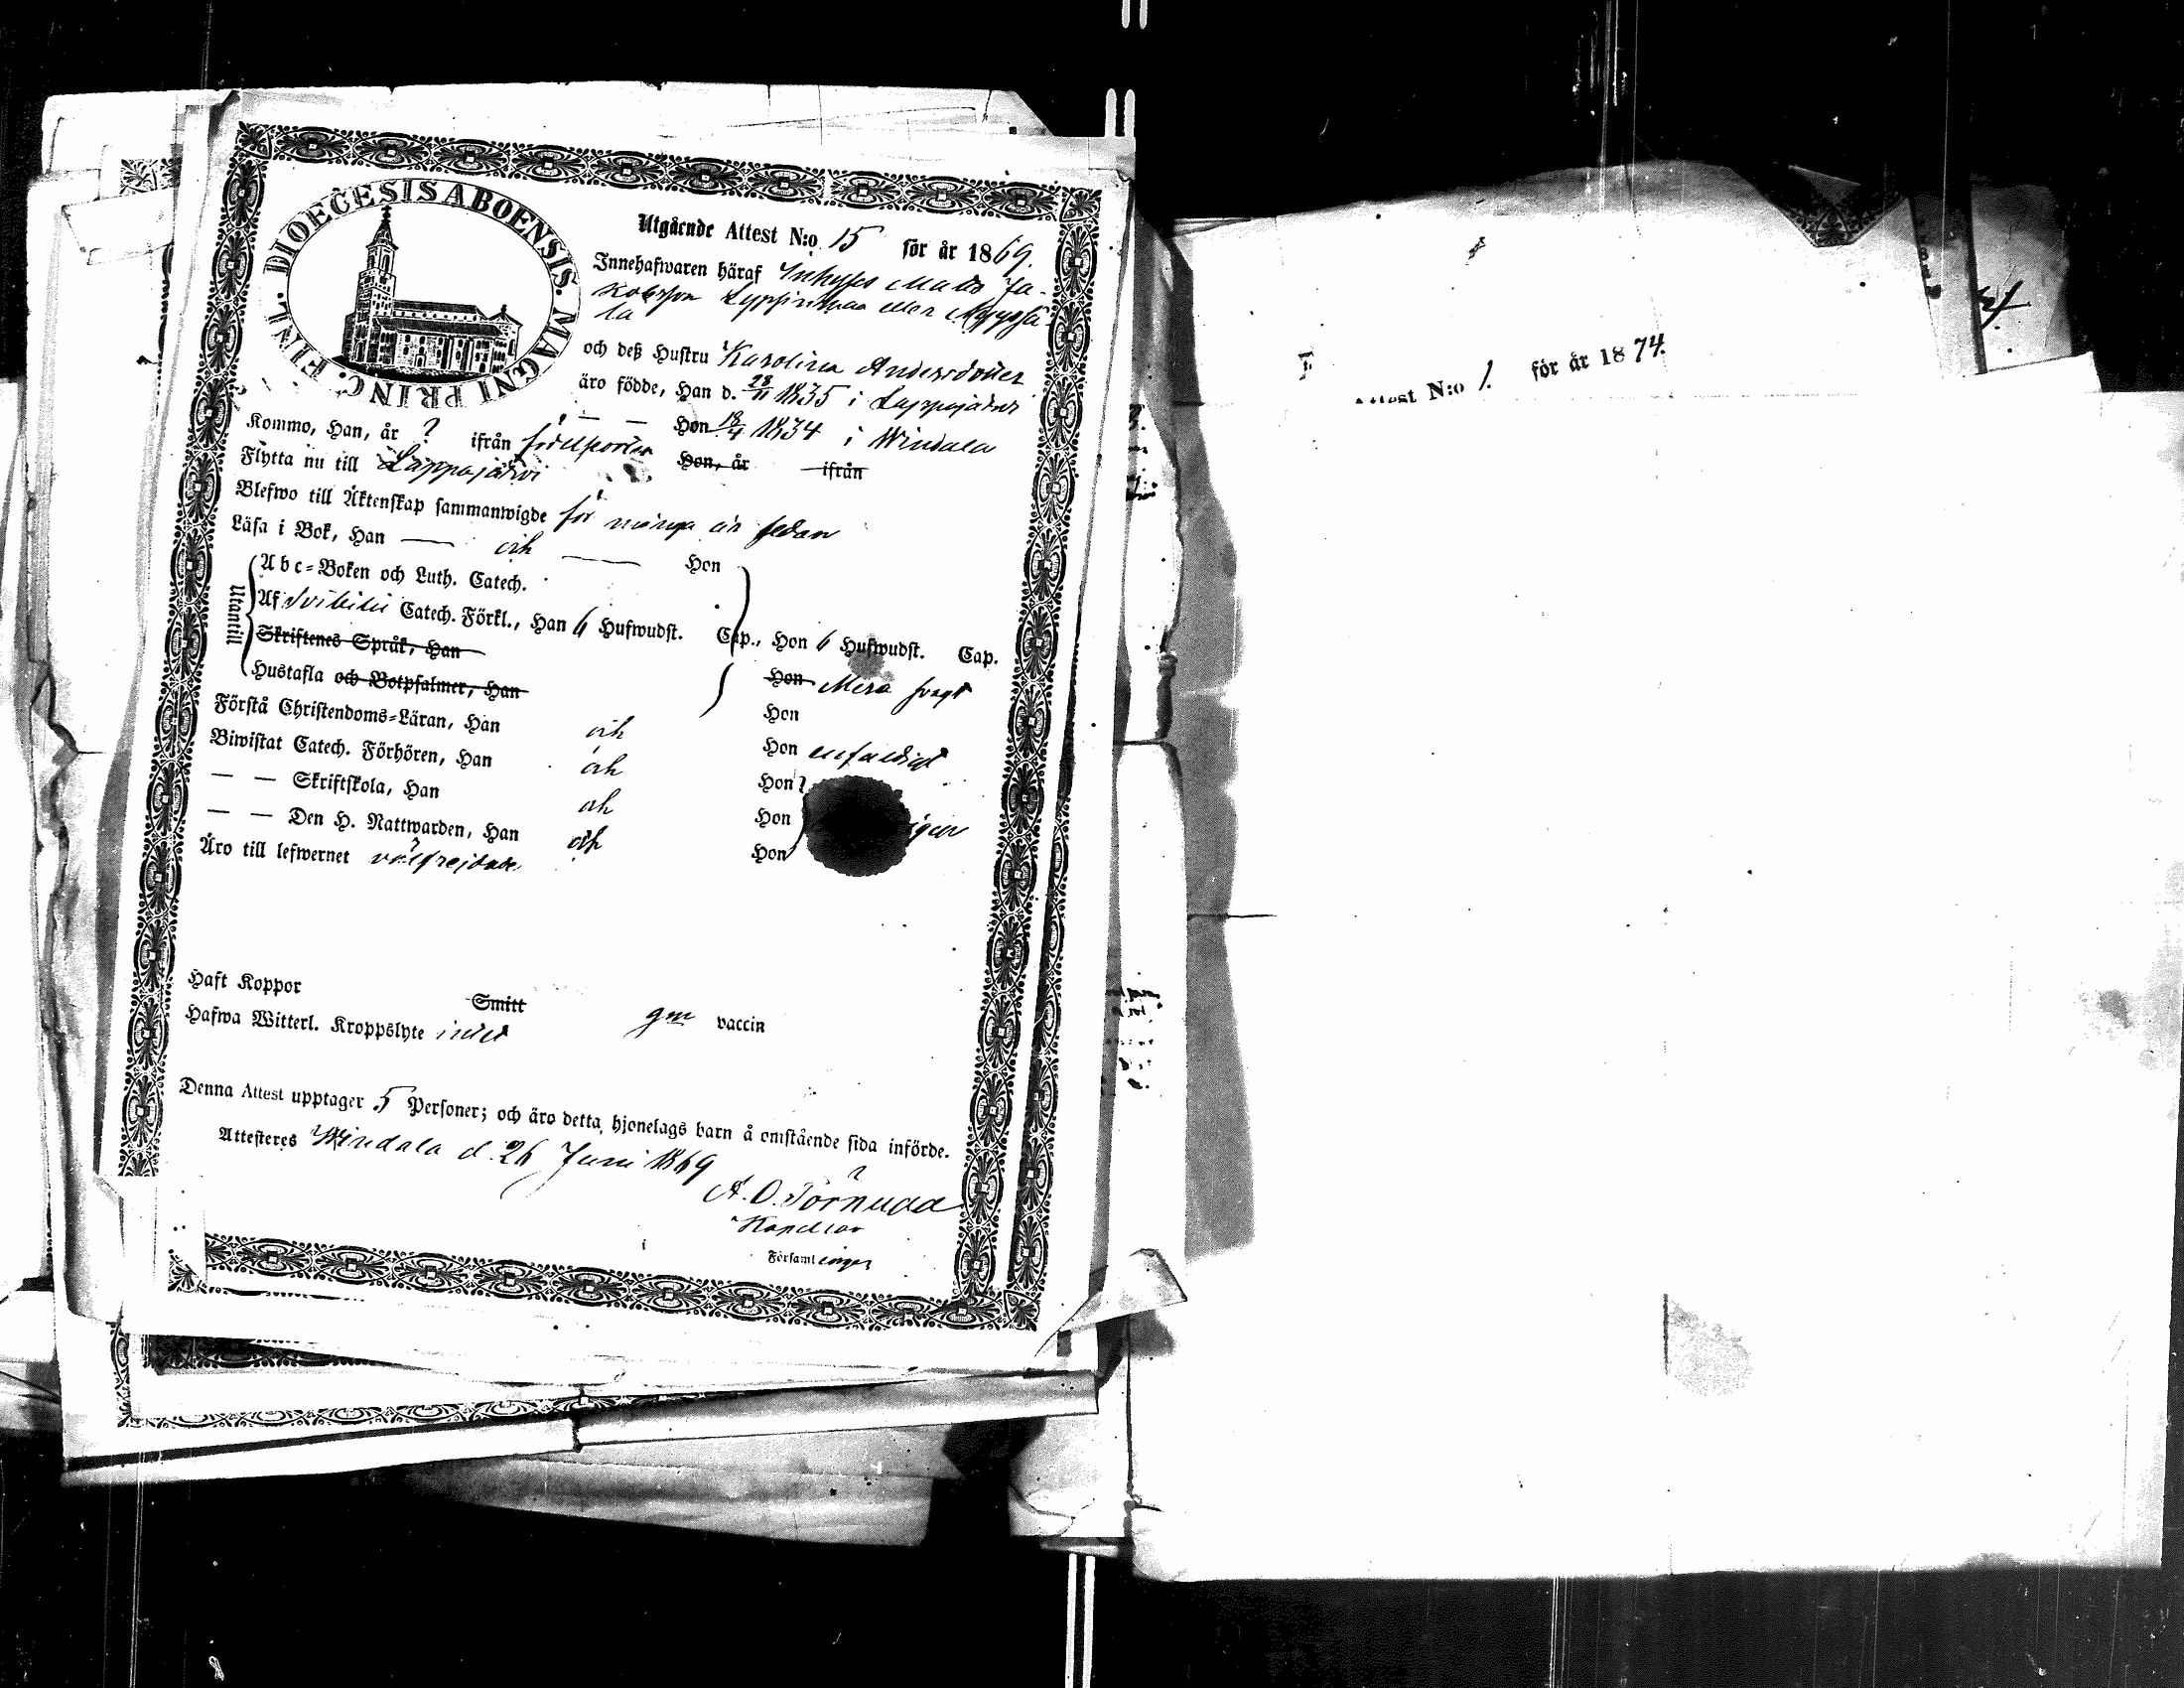 DIOECESIS ABOENSIS. MAGNI PRINC. FINL.
Utgående Attest N:o 15 för år 1869.
Innehafwaren häraf Inhyses Matts Ja-
kobsson
la
och deß Hustru Karolina Andersdotter
äro födde, Han d. 28/11 1835 i Lappajärvi
— — Hon 13/4 1834 i Windala
Kommo, Han, år ? ifrån födelseorten Hon, år ifrån
Flytta nu till Lappajärvi
Blefwo till Äktenskap sammanwigde för många år sedan
Läsa i Bok, Han — och — Hon
Utantill
Abc-Boken och Luth. Catech.
Af Svibilii Catech. Förkl., Han 6 Hufwudst. Cap., Hon 6 Hufwudst. Cap.
Skriftenes Språk, Han
Hustafla och Botpsalmer, Han Hon Mera svagt
Förstå Christendoms-Läran, Han och Hon
Biwistat Catech. Förhören, Han och Hon enfaldigt
— — Skriftskola, Han och Hon
— — Den H. Nattwarden, Han och Hon
Äro till lefwernet välfrejdade Hon
Haft Koppor Smitt gm vaccin
Hafwa Witterl. Kroppslyte intet
Denna Attest upptager 5 Personer; och äro detta hjonelags barn å omstående sida införde.
Attesteres Windala d. 26 Juni 1869
A. O. Törnudd
Kapellan
i Församlingen
Attest N:o 1. för år 1874.